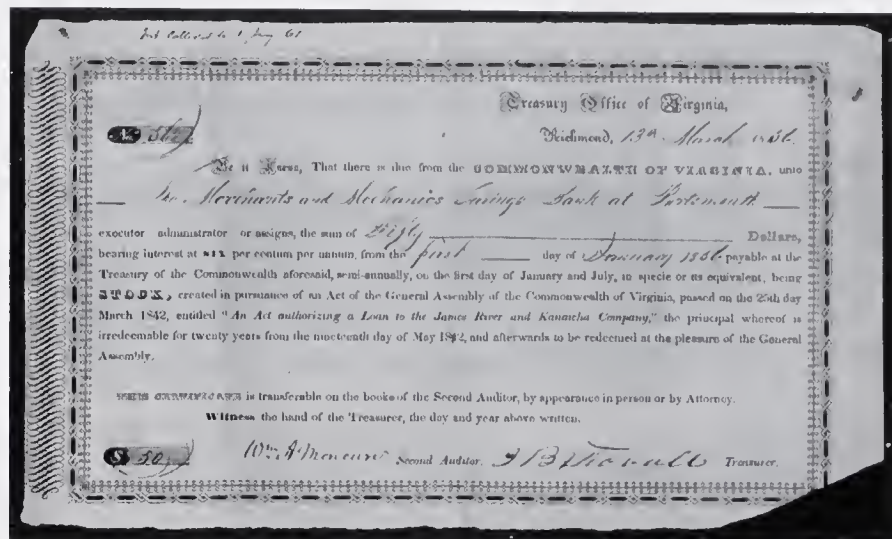 Int Collected to 1 Jany 61
Treasury Office of Virginia,
Richmond, 13th March 1856
No 567
Be it Known, That there is due from the COMMONWEALTH OF VIRGINIA, unto
The Merchants and Mechanics Savings Bank at Portsmouth
executor administrator or assigns, the sum of Fifty Dollars,
bearing interest at SIX per centum per annum, from the first day of January 1856 payable at the
Treasury of the Commonwealth aforesaid, semi-annually, on the first day of January and July, in specie or its equivalent, being
STOCK, created in pursuance of an Act of the General Assembly of the Commonwealth of Virginia, passed on the 25th day
March 1842, entitled "An Act authorizing a Loan to the James River and Kanawha Company," the principal whereof is
irredeemable for twenty years from the nineteenth day of May 1842, and afterwards to be redeemed at the pleasure of the General
Assembly.
THIS CERTIFICATE is transferable on the books of the Second Auditor, by appearance in person or by Attorney.
Witness the hand of the Treasurer, the day and year above written.
$ 50 Wm A Moncure Second Auditor. J B Stovall Treasurer.